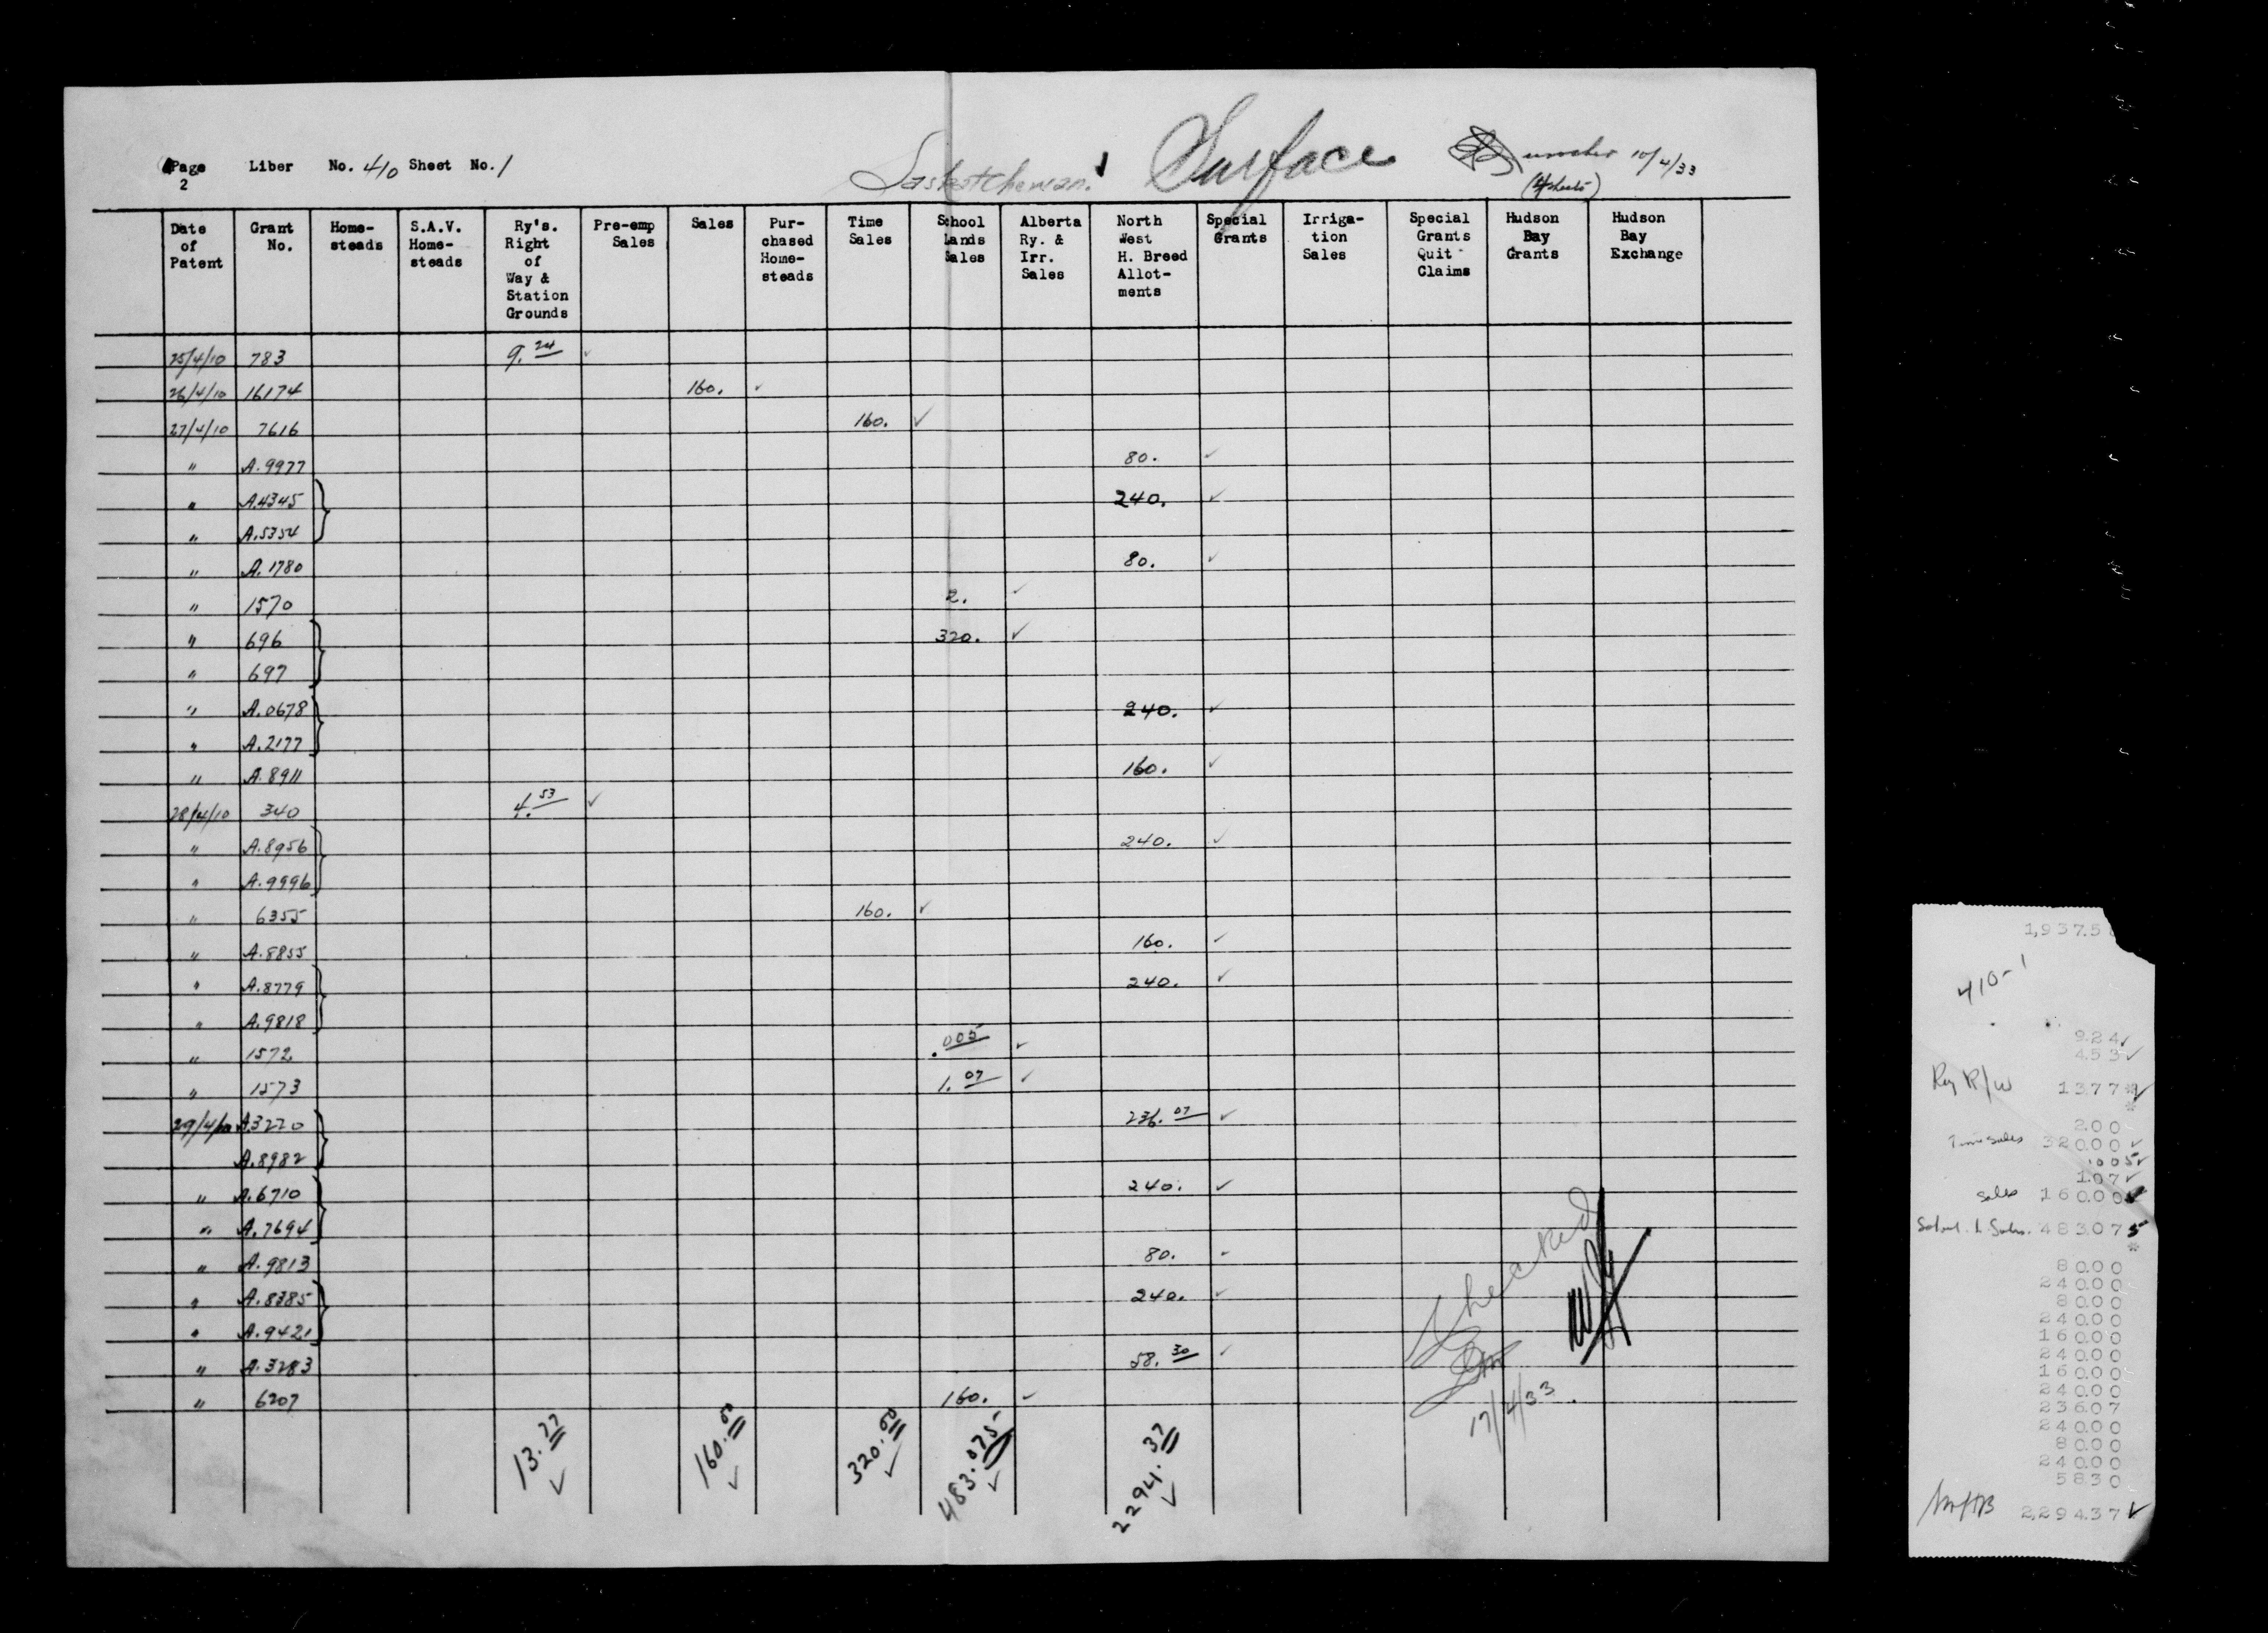 Page Liber No. 410 Sheet No. 1
2
Saskatchewan. Surface 10/4/33
(4 sheets)
Date of Patent | Grant No. | Home-steads | S.A.V. Home-steads | Ry's. Right of Way & Station Grounds | Pre-emp Sales | Sales | Pur-chased Home-steads | Time Sales | School Lands Sales | Alberta Ry. & Irr. Sales | North West H. Breed Allot-ments | Special Grants | Irriga-tion Sales | Special Grants Quit Claims | Hudson Bay Grants | Hudson Bay Exchange
25/4/10 783 9.24 ✓
26/4/10 16174 160. ✓
27/4/10 7616 160. ✓
" A.9977 80. ✓
" A.4345 } 240. ✓
" A.5354
" A.1780 80. ✓
" 1570 2. ✓
" 696 } 320. ✓
" 697
" A.0678 } 240. ✓
" A.2177
" A.8911 160. ✓
28/4/10 340 4.53 ✓
" A.8956 } 240. ✓
" A.9996
" 6355 160. ✓
" A.8855 160. ✓
" A.8779 } 240. ✓
" A.9818
" 1572 .005 ✓
" 1573 1.07 ✓
29/4/10 A.3220 } 236.07 ✓
A.8982
" A.6710 } 240. ✓
" A.7694
" A.9813 80. ✓
" A.8385 } 240. ✓
" A.9421
" A.3283 58.30 ✓
" 6207 160. ✓
13.77 ✓ 160.00 ✓ 320.00 ✓ 483.075 ✓ 2294.37 ✓
Checked
17/4/33
1,937.5
410-1
9.24 ✓
4.53 ✓
Ry R/W 13.77 * ✓
*
2.00
Time Sales 320.00 ✓
.005 ✓
1.07 ✓
Sales 160.00 ✓
School L Sales. 483.075
*
80.00
240.00
80.00
240.00
160.00
240.00
160.00
240.00
236.07
240.00
80.00
240.00
58.30
2,294.37 ✓